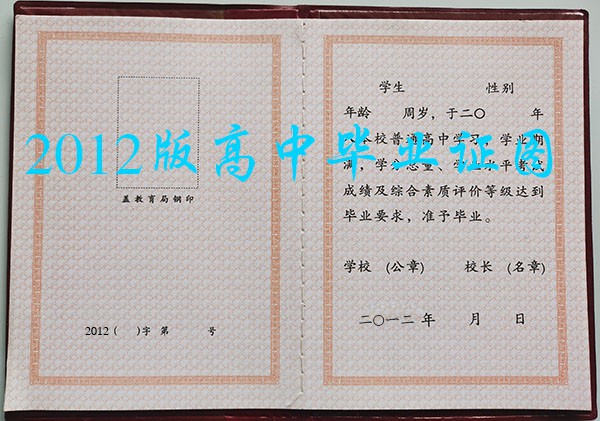 2012版高中毕业证图
盖教育局钢印
2012 ( )字 第 号
学生 性别
年龄 周岁，于二〇 年
本校普通高中学习，学业期
满，学分总量、学业水平考试
成绩及综合素质评价等级达到
毕业要求，准予毕业。
学校 (公章) 校长 (名章)
二〇一二 年 月 日